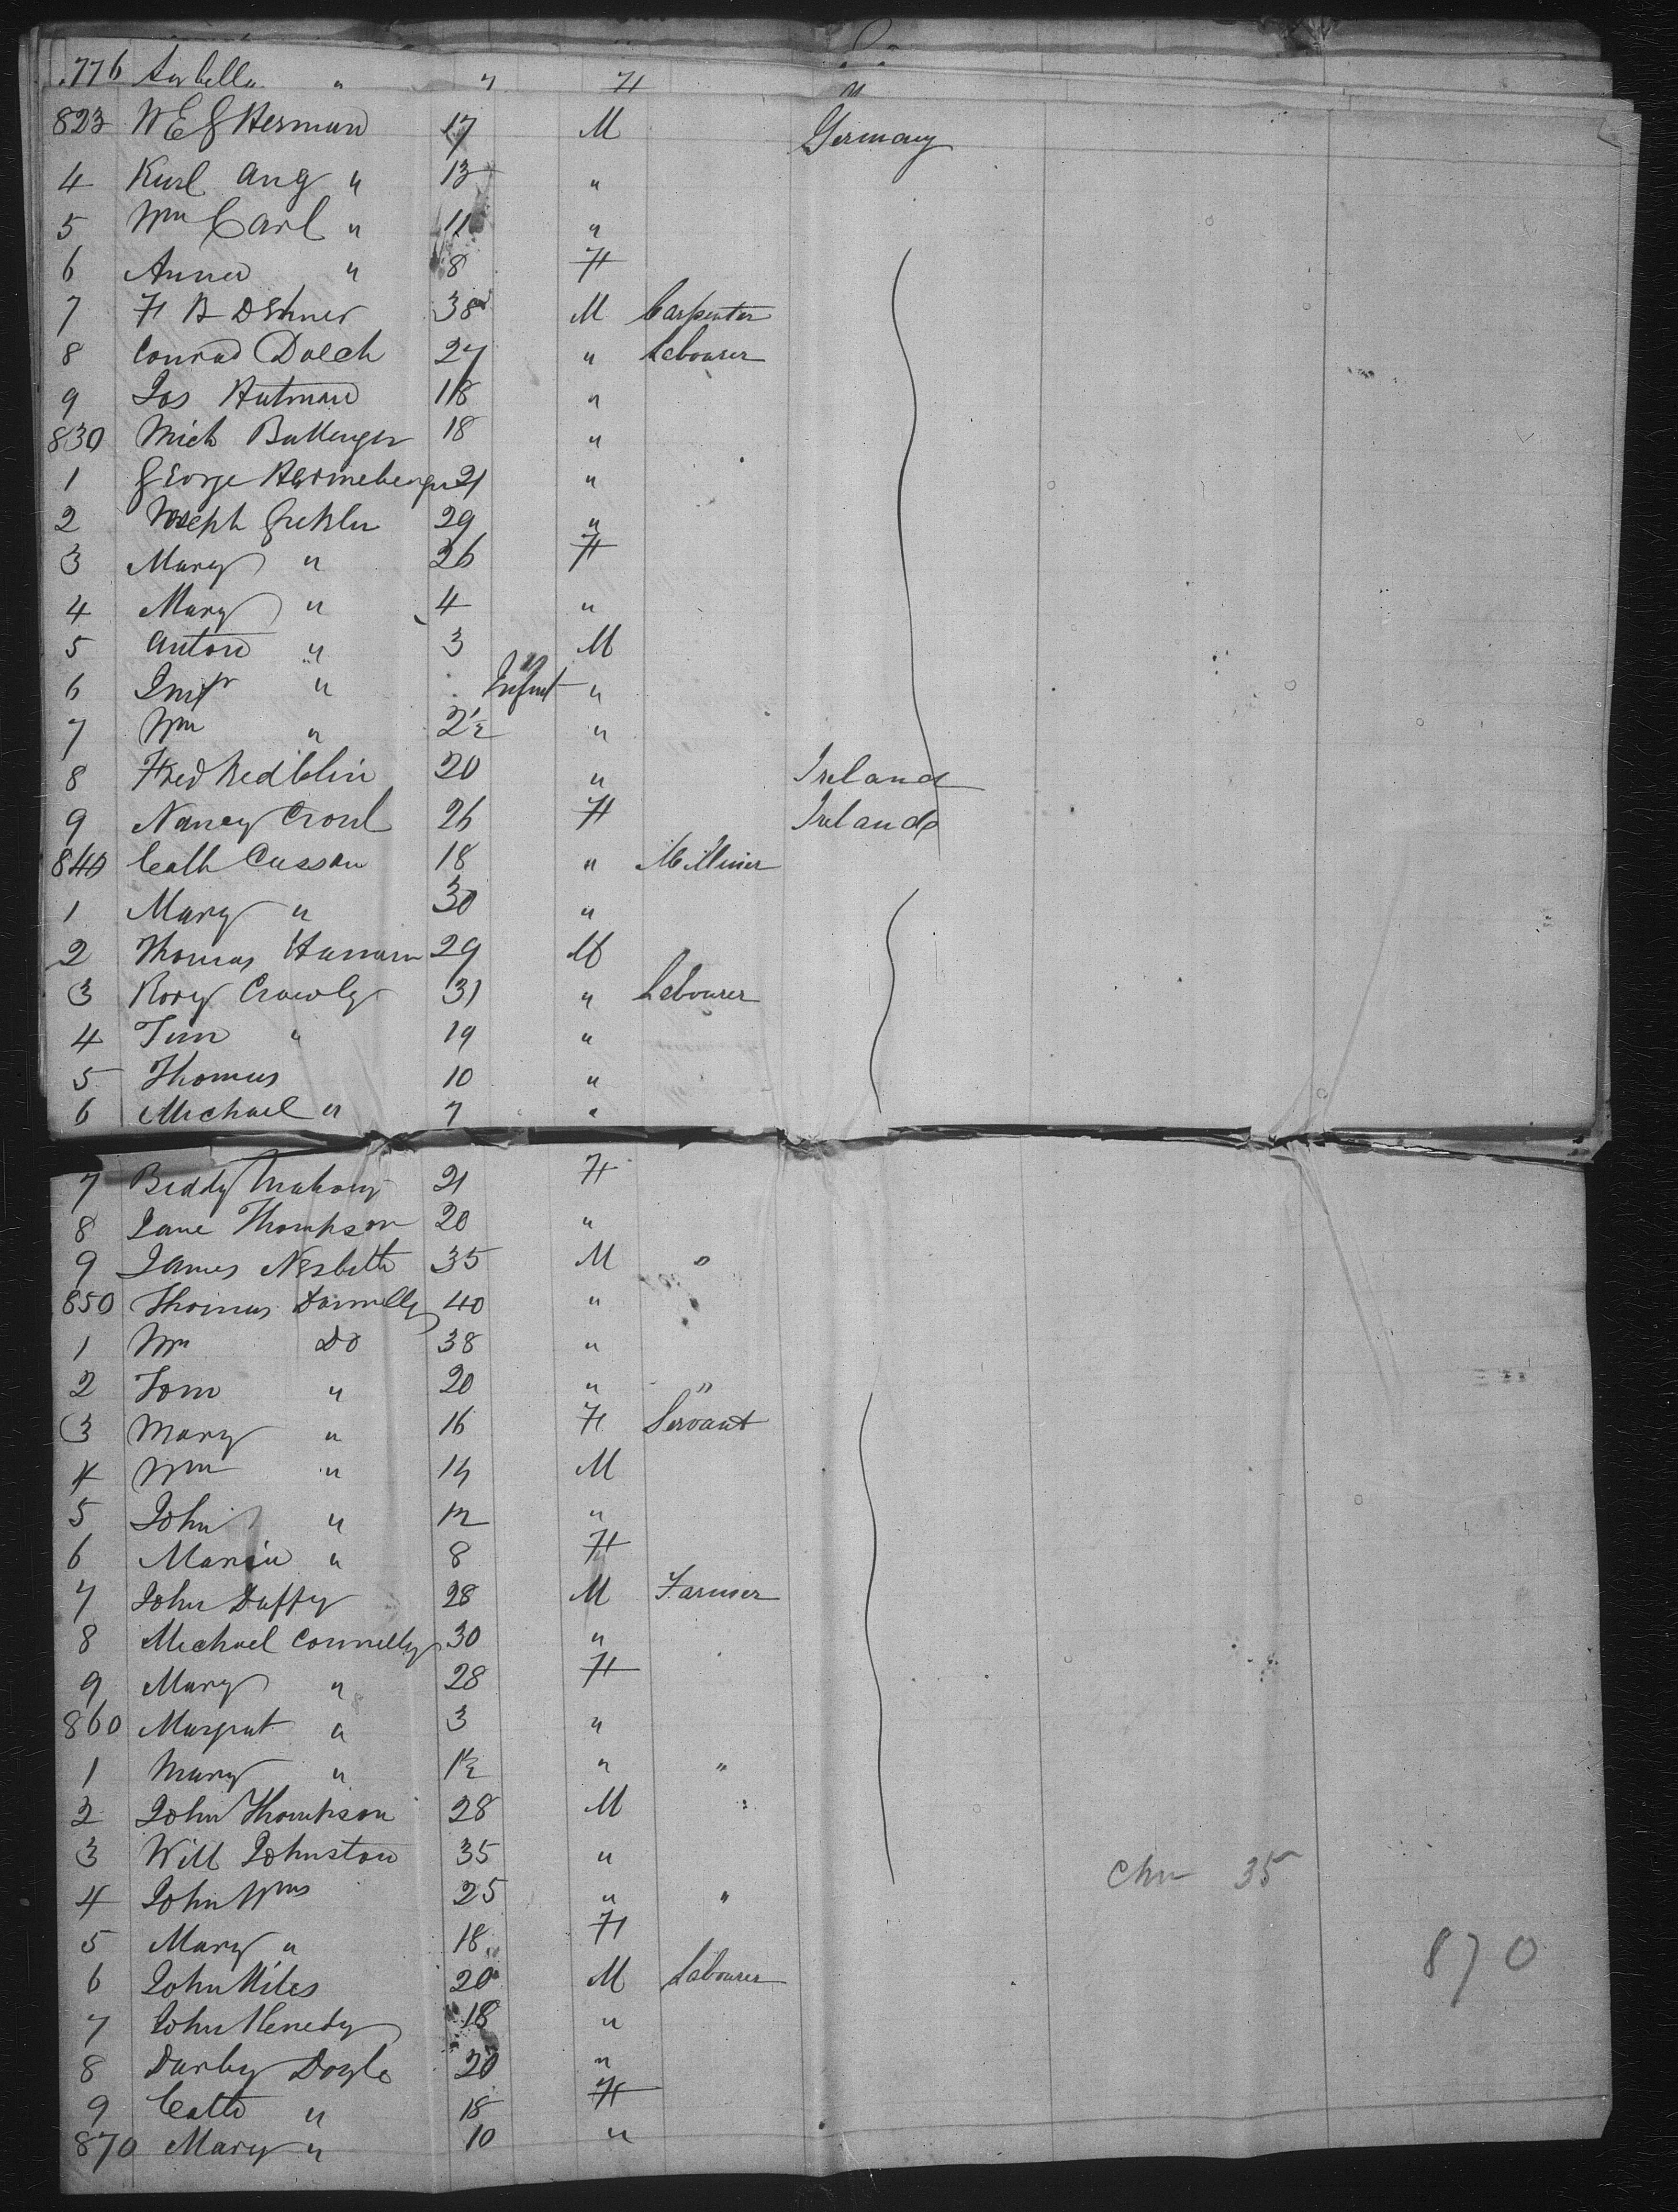 776 Arbella " " F "
823 W E G Herman 17 M Germany
4 Kurl Aug " 13 "
5 Wm Carl " 11 "
6 Anna " 8 F
7 F B 38 M Carpenter
8 Conrad Dolch 27 " Labourer
9 Jos Hutman 18 "
830 Mich Bullenger 18 "
1 George 21 "
2 Joseph 29 "
3 Mary " 26 F
4 Mary " 4 "
5 Anton " 3 M
6 " Infant "
7 Wm " 2½ "
8 Fred 20 " Ireland
9 Nancy 26 F Ireland
840 Cath Cusson 18 " Milliner
1 Mary " 30 "
2 Thomas 29 M
3 Rory Crowly 31 " Labourer
4 Tim " 19 "
5 Thomas 10 "
6 Michael " 7 "
7 Biddy Mahony 21 F
8 Jane Thompson 20 "
9 James Nesbitt 35 M "
850 Thomas Donnelly 40 "
1 Wm Do 38 "
2 Tom " 20 " "
3 Mary " 16 F Servant
4 Wm " 14 M
5 John " 12 "
6 Maria " 8 F
7 John Duffy 28 M Farmer
8 Michael Connelly 30 "
9 Mary " 28 F
860 Margrat " 3 "
1 Mary " 1½ " "
2 John Thompson 28 M "
3 Will Johnston 35 "
Chn 35
4 John Wms 25 " "
5 Mary " 18 F
870
6 John Miles 20 M Labourer
7 John Kenedy 18 "
8 Darby Doyle 20 "
9 Cath " 18 F
870 Mary " 10 "